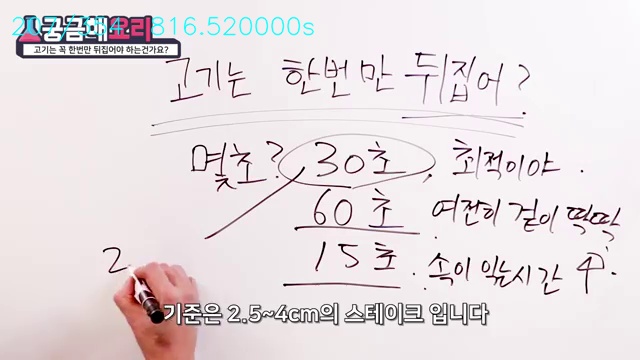 816.520000s
궁금해요리
고기는 꼭 한번만 뒤집어야 하는건가요?
고기는 한번만 뒤집어?
몇초? 30초, 최적이야.
60초 여전히 겉이 딱딱
15초. 속이 익는시간 ↑.
2.
기준은 2.5~4cm의 스테이크 입니다